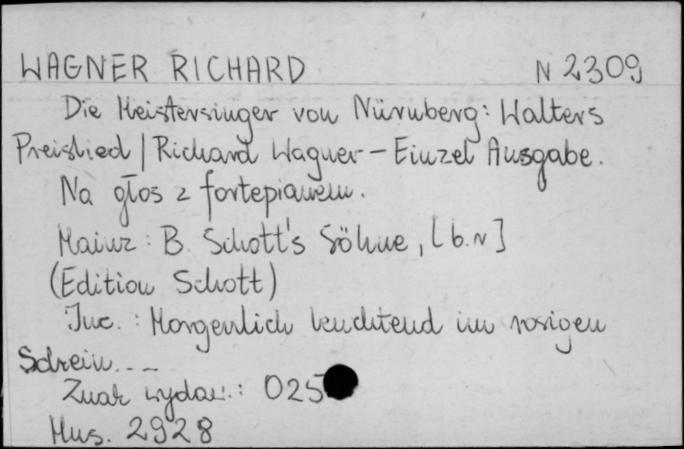 WAGNER RICHARD N 2309
Die Meistersinger von Nürnberg: Walters
Preislied / Richard Wagner – Einzel Ausgabe.
Na głos z fortepianem.
Mainz: B. Schott's Söhne, [b.r]
(Edition Schott)
Inc.: Morgenlich leuchtend im rosigen
Schein...
Znak wydaw.: 025
Mus. 2928